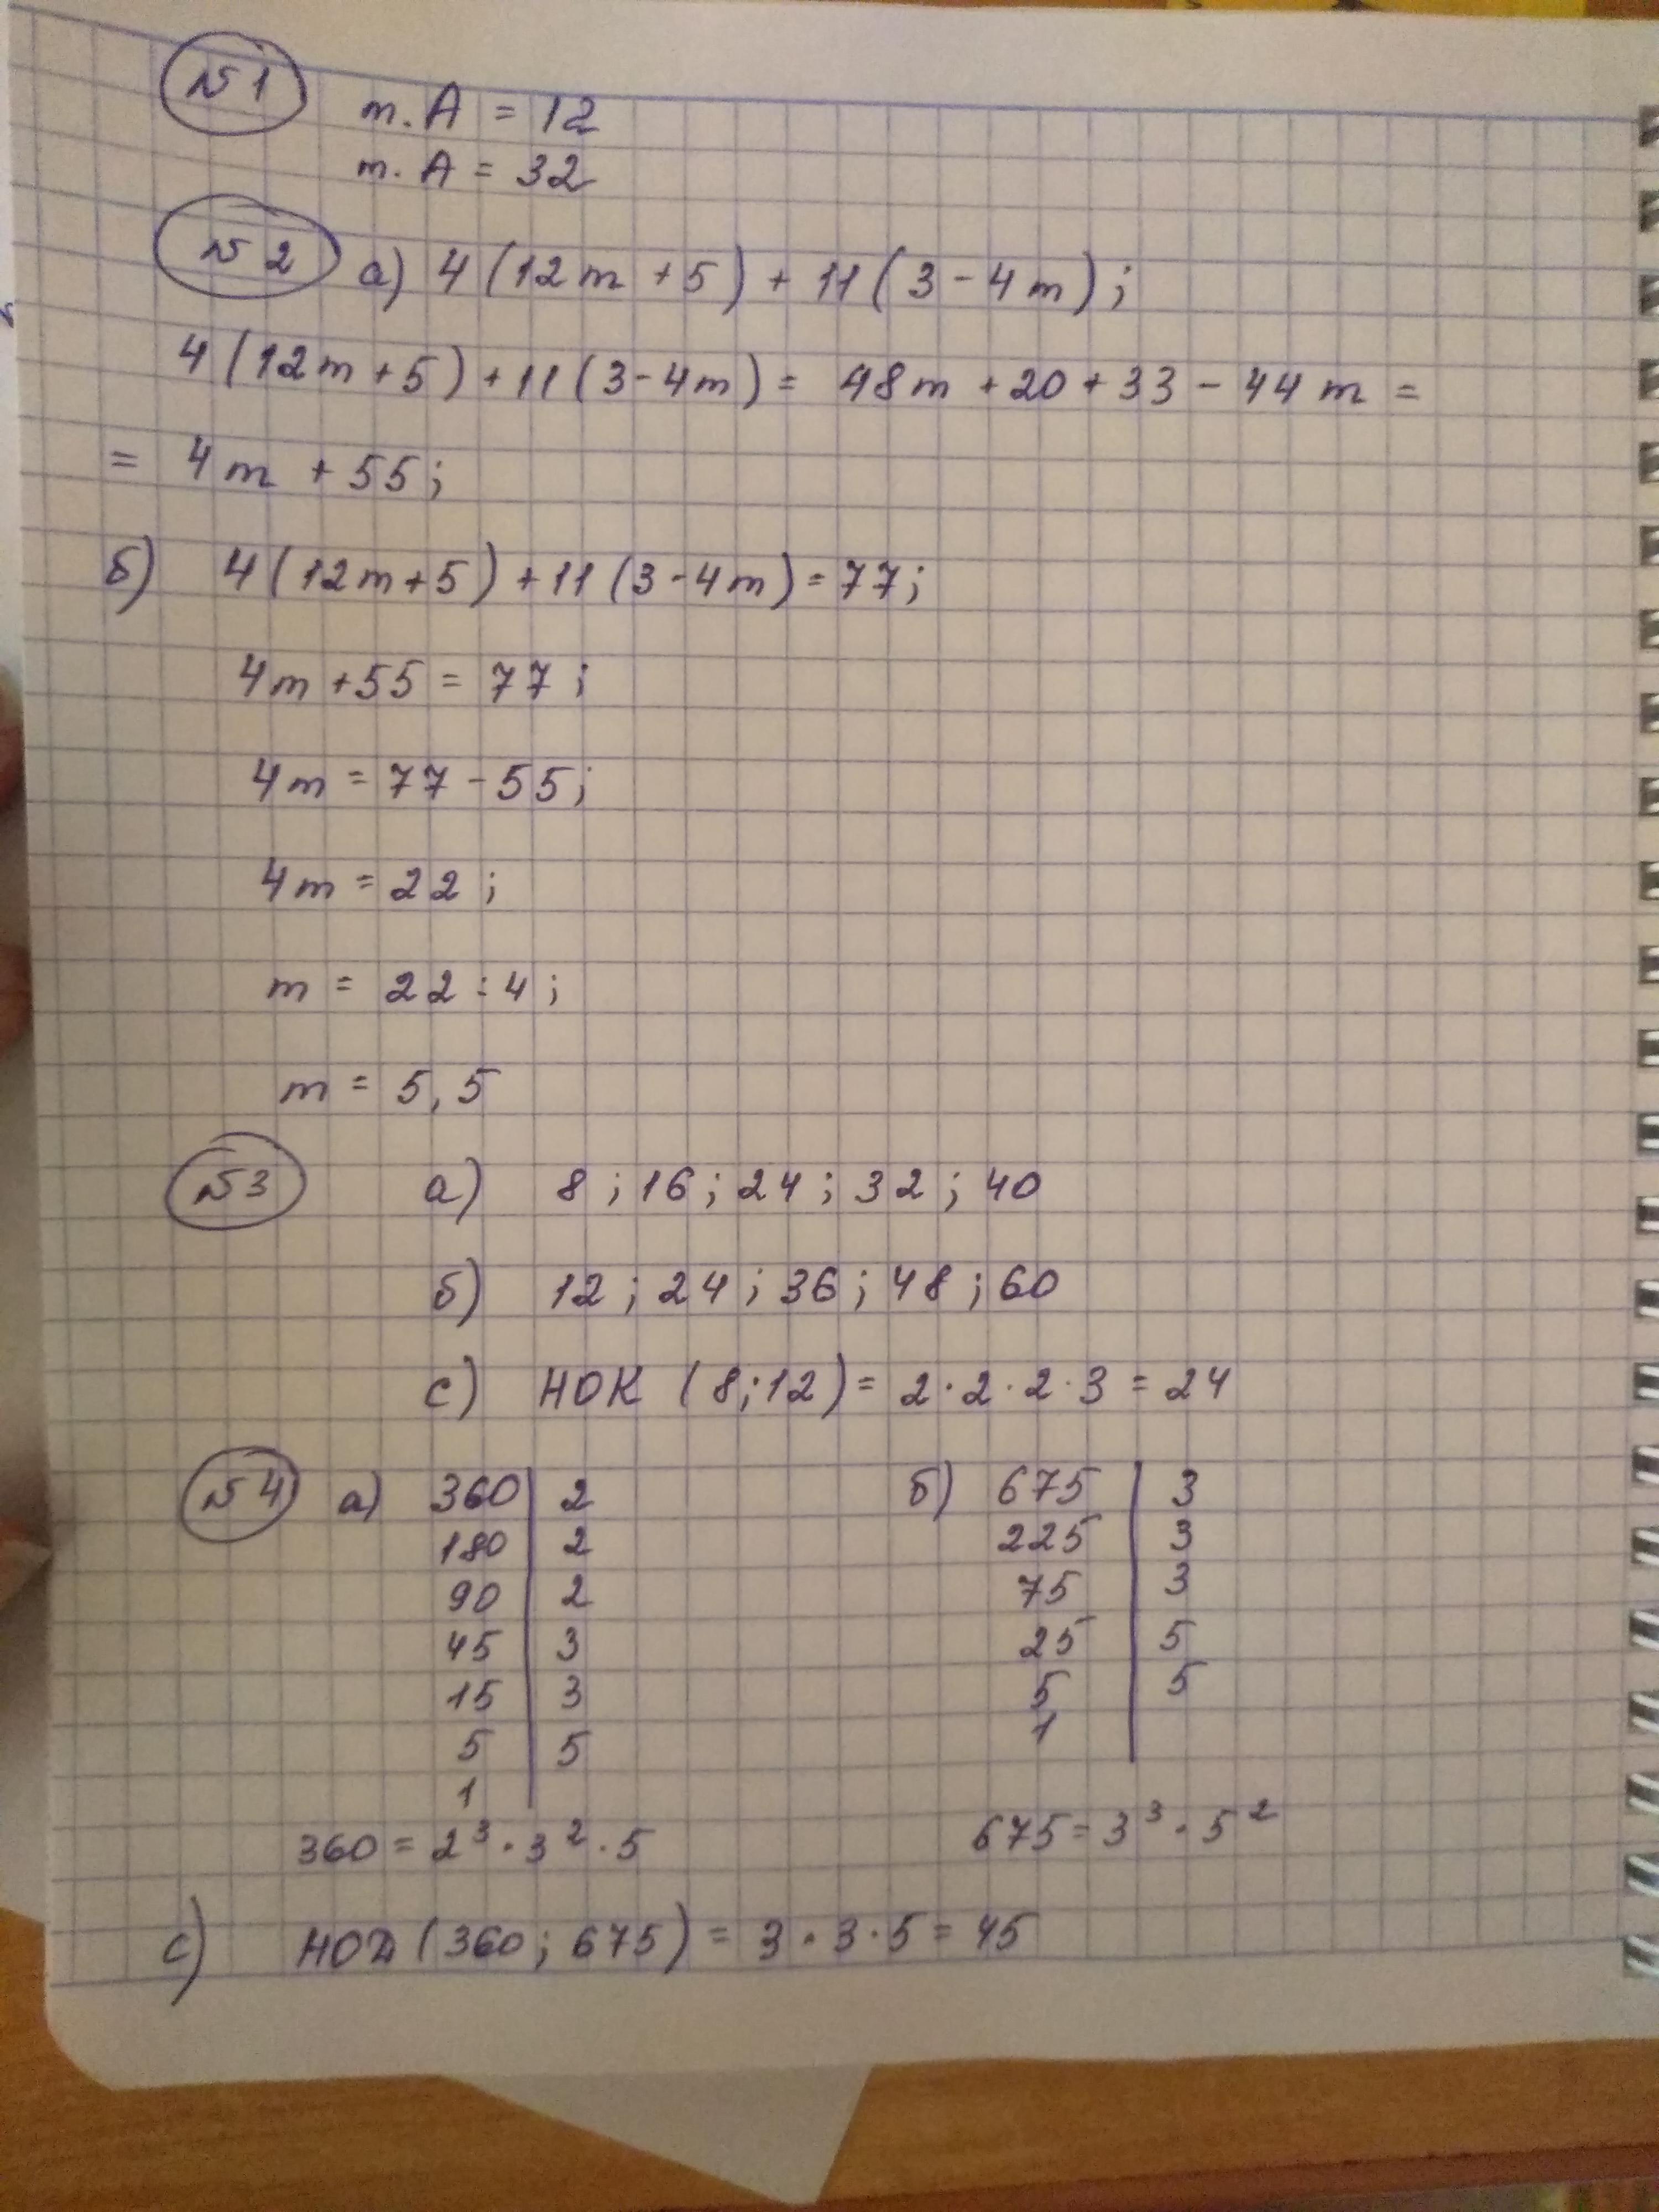 №1 т. А = 12
т. А = 32
№2 а) 4 (12m + 5) + 11 (3 - 4m) ;
4 (12m + 5) + 11 (3 - 4m) = 48m + 20 + 33 - 44m =
= 4m + 55;
б) 4 (12m + 5) + 11 (3 - 4m) = 77;
4m + 55 = 77;
4m = 77 - 55;
4m = 22;
m = 22 : 4;
m = 5,5
№3 а) 8 ; 16 ; 24 ; 32 ; 40
б) 12 ; 24 ; 36 ; 48 ; 60
с) НОК (8;12) = 2 · 2 · 2 · 3 = 24
№4 а) 360 | 2 б) 675 | 3
180 | 2 225 | 3
90 | 2 75 | 3
45 | 3 25 | 5
15 | 3 5 | 5
5 | 5 1
1
360 = 2³ · 3² · 5 675 = 3³ · 5²
с) НОД (360; 675) = 3 · 3 · 5 = 45